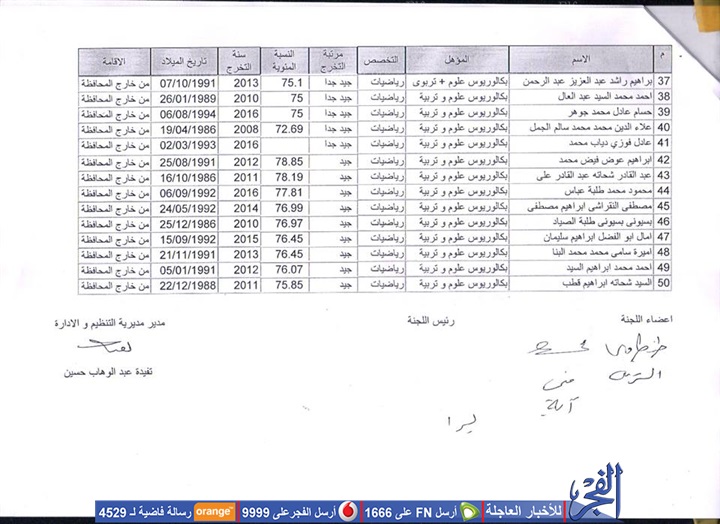 م الاسم المؤهل التخصص مرتبة التخرج النسبة المئوية سنة التخرج تاريخ الميلاد الاقامة
37 براهيم راشد عبد العزيز عبد الرحمن بكالوريوس علوم + تربوى رياضيات جيد جدا 75.1 2013 07/10/1991 من خارج المحافظة
38 احمد محمد السيد عبد العال بكالوريوس علوم و تربية رياضيات جيد جدا 75 2010 26/01/1989 من خارج المحافظة
39 حسام عادل محمد جوهر بكالوريوس علوم و تربية رياضيات جيد جدا 75 2016 06/08/1994 من خارج المحافظة
40 علاء الدين محمد محمد سالم الجمل بكالوريوس علوم و تربية رياضيات جيد جدا 72.69 2008 19/04/1986 من خارج المحافظة
41 عادل فوزي دياب محمد بكالوريوس علوم و تربية رياضيات جيد جدا 2016 02/03/1993 من خارج المحافظة
42 ابراهيم عوض فيض محمد بكالوريوس علوم و تربية رياضيات جيد 78.85 2012 25/08/1991 من خارج المحافظة
43 عبد القادر شحاته عبد القادر على بكالوريوس علوم و تربية رياضيات جيد 78.19 2011 16/10/1986 من خارج المحافظة
44 محمود محمد طلبة عباس بكالوريوس علوم و تربية رياضيات جيد 77.81 2016 06/09/1992 من خارج المحافظة
45 مصطفى النقراشى ابراهيم مصطفى بكالوريوس علوم و تربية رياضيات جيد 76.99 2014 24/05/1992 من خارج المحافظة
46 بسيونى بسيونى طلبة الصياد بكالوريوس علوم و تربية رياضيات جيد 76.97 2010 25/12/1986 من خارج المحافظة
47 امال ابو الفضل ابراهيم سليمان بكالوريوس علوم و تربية رياضيات جيد 76.45 2015 15/09/1992 من خارج المحافظة
48 اميرة سامى محمد محمد البنا بكالوريوس علوم و تربية رياضيات جيد 76.45 2013 21/11/1991 من خارج المحافظة
49 احمد محمد ابراهيم السيد بكالوريوس علوم و تربية رياضيات جيد 76.07 2012 05/01/1991 من خارج المحافظة
50 السيد شحاته ابراهيم قطب بكالوريوس علوم و تربية رياضيات جيد 75.85 2011 22/12/1988 من خارج المحافظة
اعضاء اللجنة رئيس اللجنة مدير مديرية التنظيم و الادارة
تفيدة عبد الوهاب حسين
منى
آية
الفجر
للأخبار العاجلة أرسل FN على 1666 أرسل الفجر على 9999 orange رسالة فاضية لـ 4529